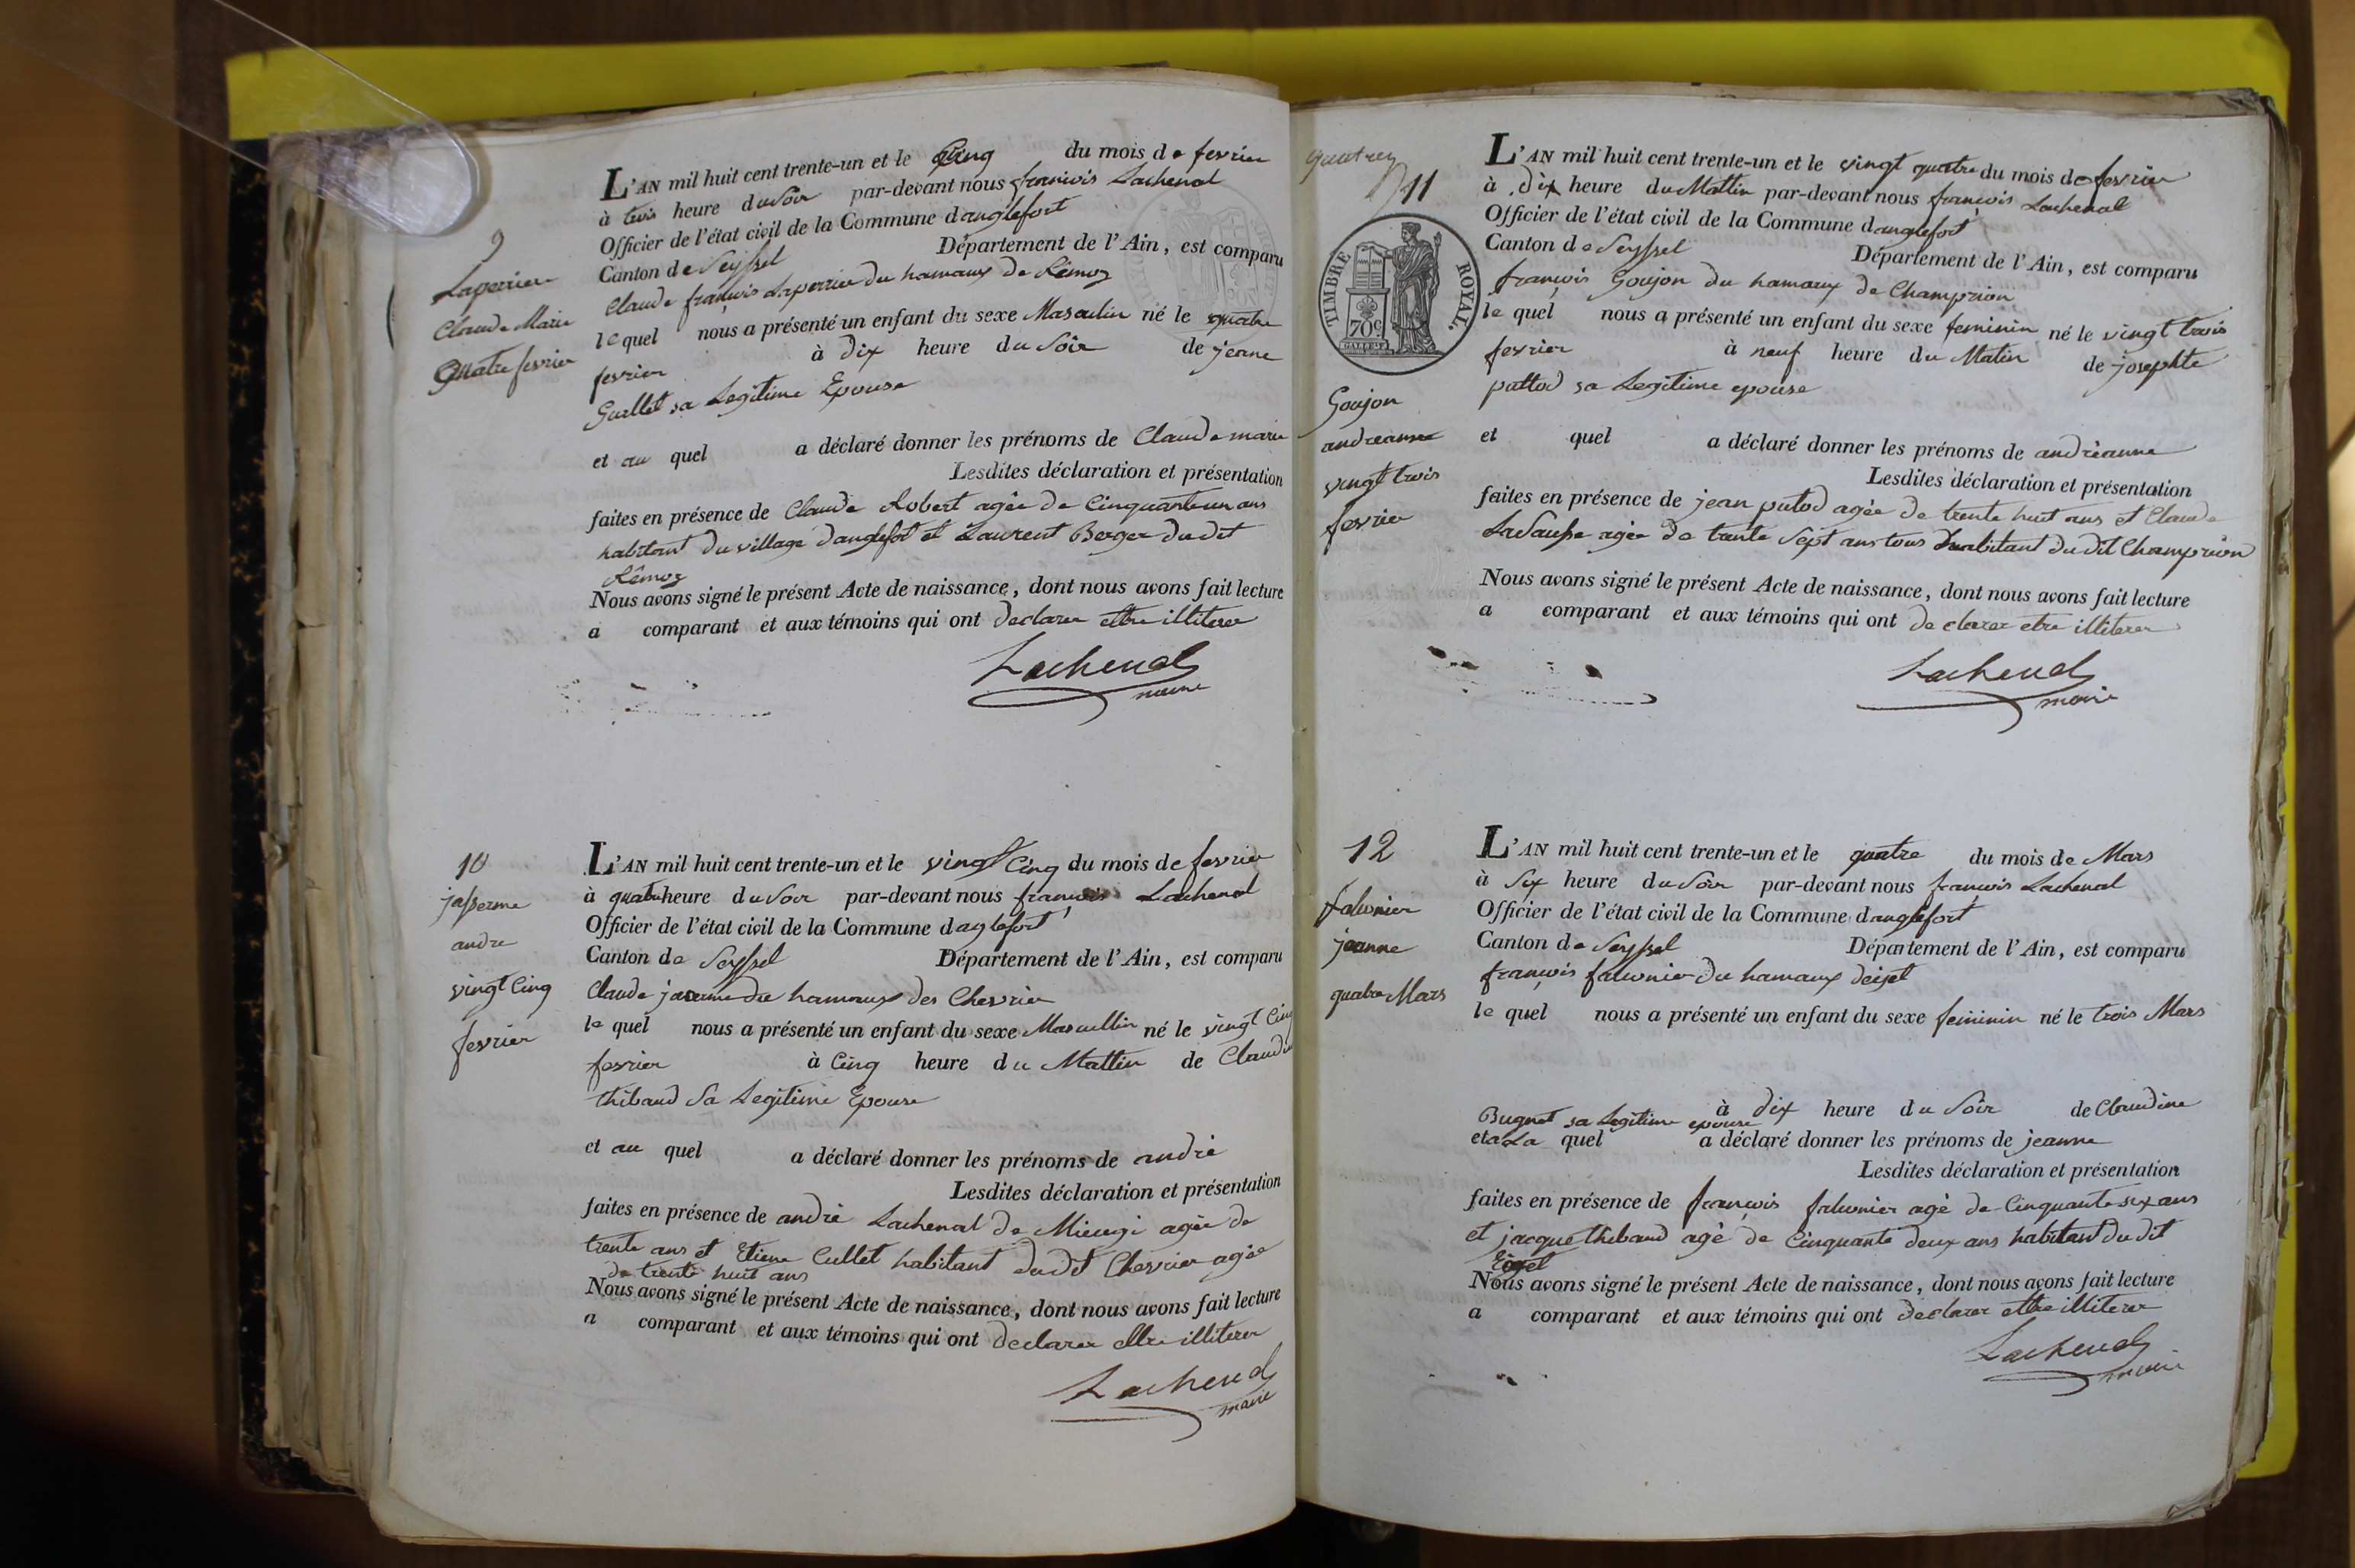 9
Laperriere
Claude Marie
Quatre fevrier
L'AN mil huit cent trente-un et le Cinq du mois de fevrier
à trois heure du Soir par-devant nous françois Lachenal
Officier de l'état civil de la Commune danglefort
Canton de Seyssel Département de l'Ain, est comparu
Claude françois Laperriere du hamaux de Rêmoz
le quel nous a présenté un enfant du sexe Masculin né le quatre
fevrier à dix heure du Soir de jeane
Guillet sa Legitime Epouse
et au quel a déclaré donner les prénoms de Claude marie
Lesdites déclaration et présentation
faites en présence de Claude Robert agée de Cinquante un ans
habitant du village danglefort et Laurent Berger du dit
Rêmoz
Nous avons signé le présent Acte de naissance, dont nous avons fait lecture
a comparant et aux témoins qui ont declarer ettre illiterer
Lachenal
maire
10
jasserme
andre
vingt Cinq
fevrier
L'AN mil huit cent trente-un et le vingt Cinq du mois de fevrier
à quatre heure du Soir par-devant nous françois Lachenal
Officier de l'état civil de la Commune daglefort
Canton de Seyssel Département de l'Ain, est comparu
Claude jaserme du hamaux des Chevrier
le quel nous a présenté un enfant du sexe Masculin né le vingt Cinq
fevrier à Cinq heure du Mattin de Claudine
thibaud Sa Legitime Epouse
et au quel a déclaré donner les prénoms de andré
Lesdites déclaration et présentation
faites en présence de andré Lachenal de agée de
trente ans et Etiene Cullet habitant du dit Chevrier agée
de trente huit ans
Nous avons signé le présent Acte de naissance, dont nous avons fait lecture
a comparant et aux témoins qui ont declarer ettre illiterer
Lachenal
maire
11
TIMBRE ROYAL.
70c
Goujon
andreanne
vingt trois
fevrier
L'AN mil huit cent trente-un et le vingt quatre du mois de fevrier
à dix heure du Mattin par-devant nous françois Lachenal
Officier de l'état civil de la Commune danglefort
Canton de Seyssel Département de l'Ain, est comparu
françois Goujon du hamaux de Champrion
le quel nous a présenté un enfant du sexe feminin né le vingt trois
fevrier à neuf heure du Matin de josephte
puttod sa Legitime epouse
et quel a déclaré donner les prénoms de andréanne
Lesdites déclaration et présentation
faites en présence de jean putod agée de trente huit ans et Claude
agée de trente Sept ans tous habitant du dit Champrion
Nous avons signé le présent Acte de naissance, dont nous avons fait lecture
a comparant et aux témoins qui ont declarer etre illiterer
Lachenal
maire
12
falconier
jeanne
quatre Mars
L'AN mil huit cent trente-un et le quatre du mois de Mars
à Six heure du Soir par-devant nous françois Lachenal
Officier de l'état civil de la Commune danglefort
Canton de Seyssel Département de l'Ain, est comparu
françois falconier du hamaux
le quel nous a présenté un enfant du sexe feminin né le trois Mars
à dix heure du Soir de Claudine
Bugnet sa Legitime epouse
et a La quel a déclaré donner les prénoms de jeanne
Lesdites déclaration et présentation
faites en présence de françois falconier agé de Cinquante six ans
et jacque thibaud agé de Cinquante deux ans habitant du dit
Nous avons signé le présent Acte de naissance, dont nous avons fait lecture
a comparant et aux témoins qui ont declarer ettre illiterer
Lachenal
maire